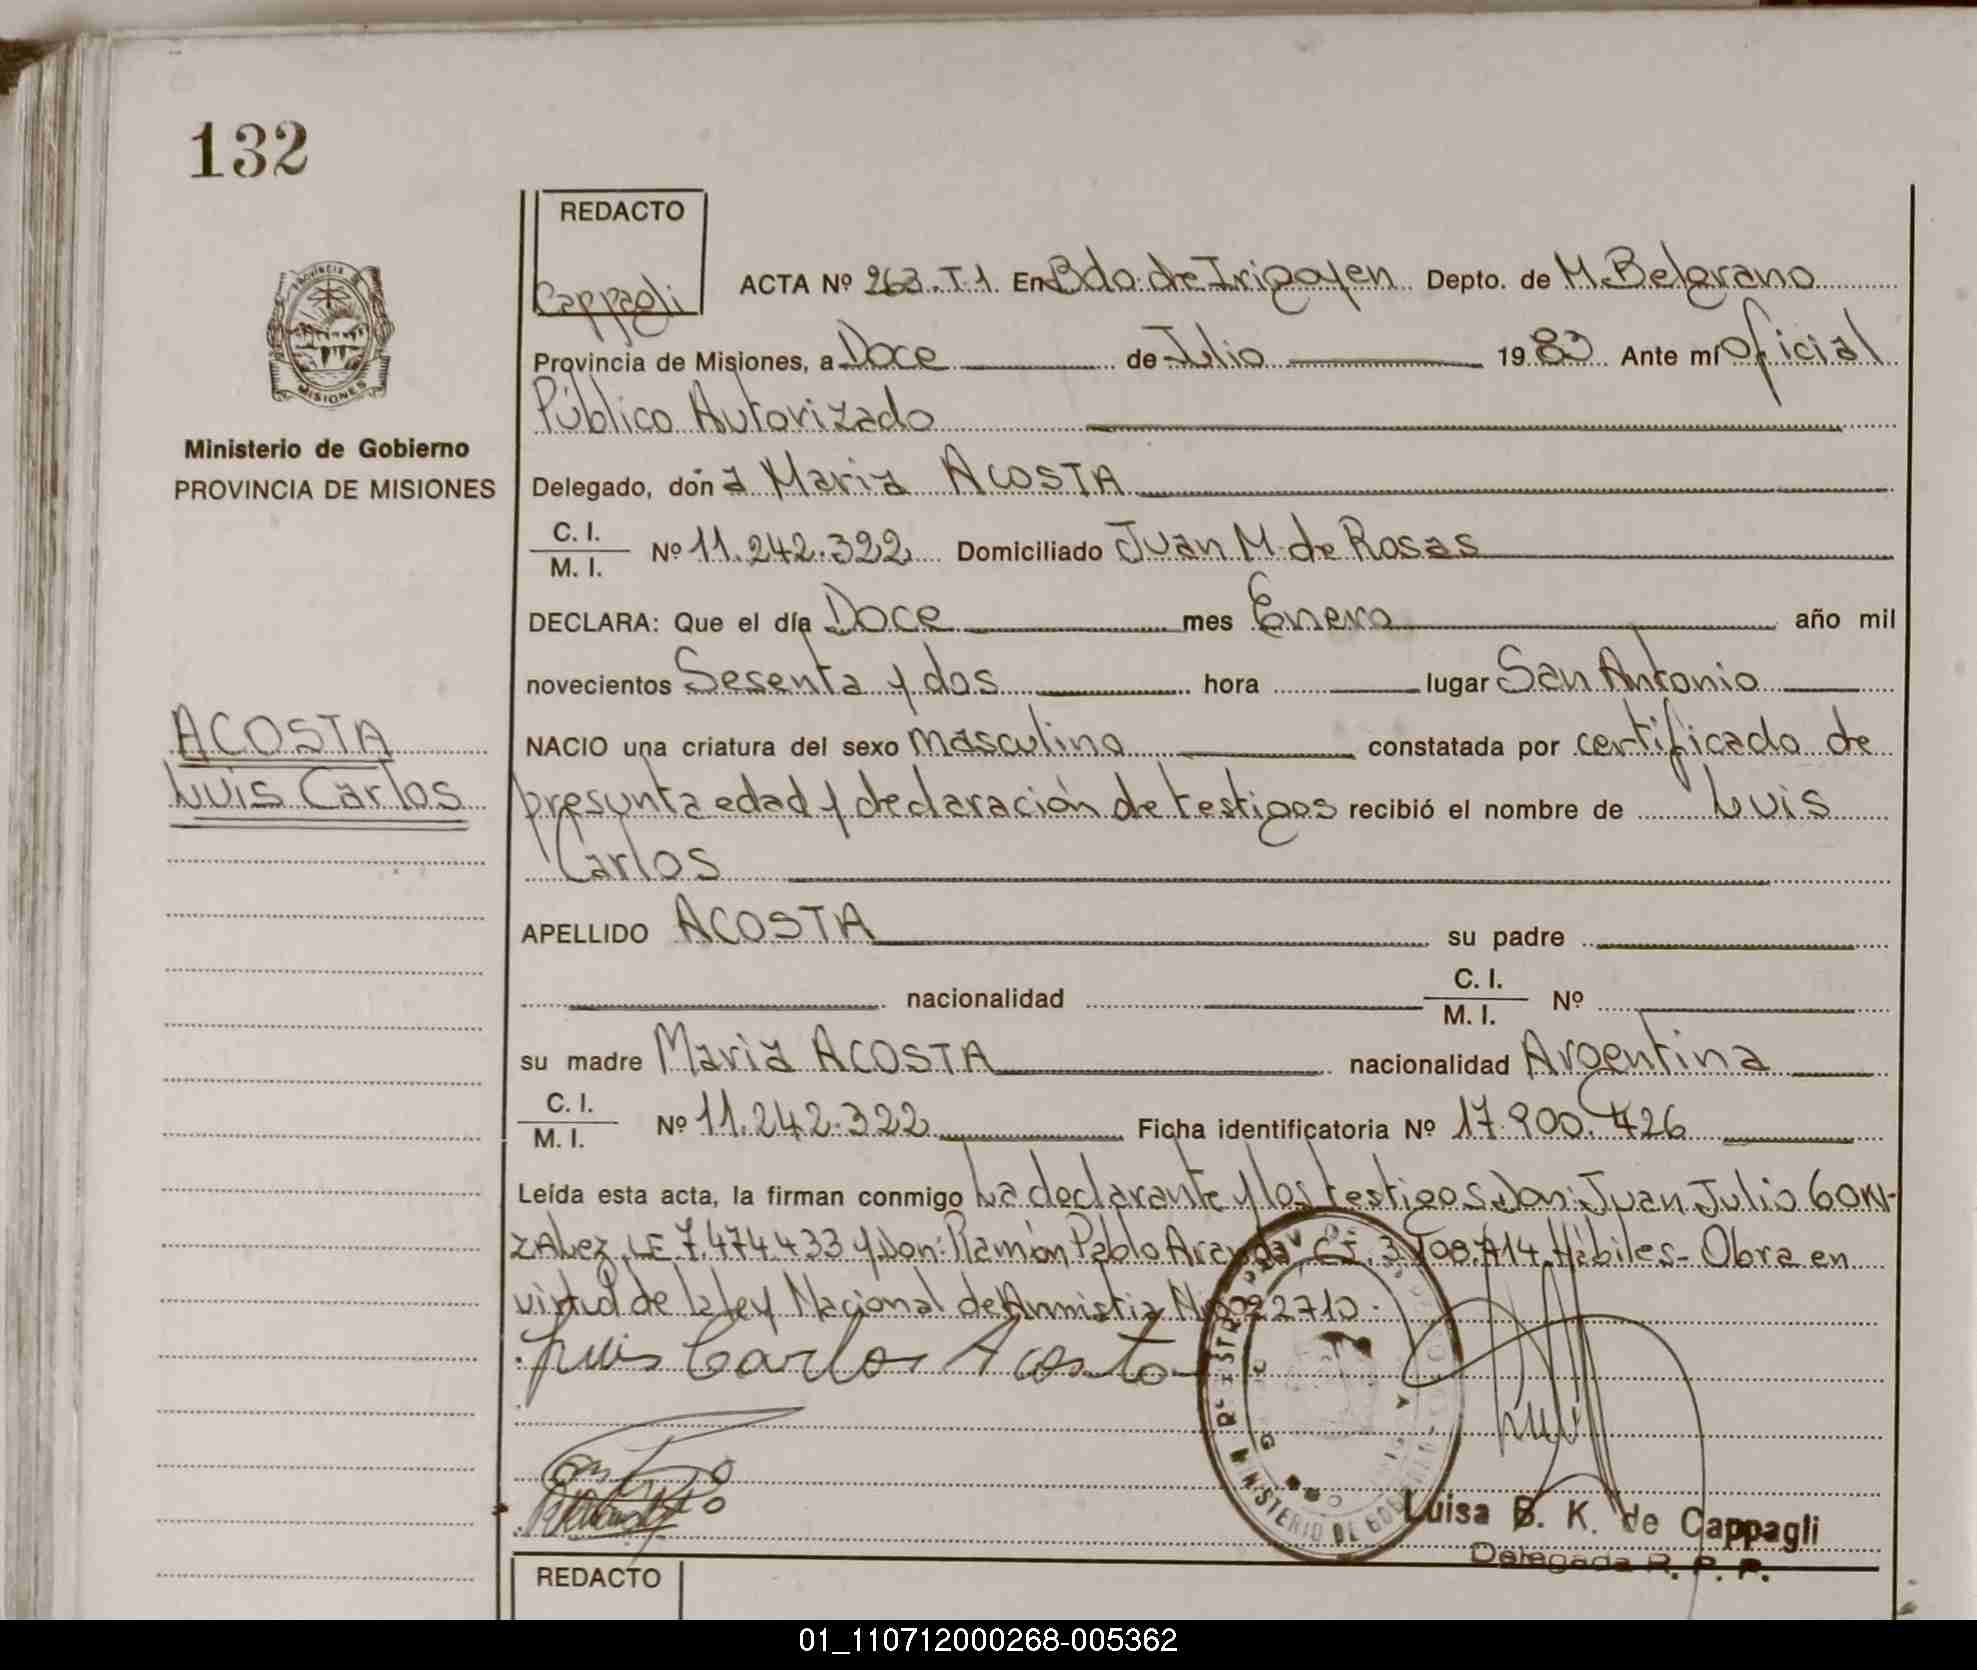 132
REDACTO
Cappagli
ACTA Nº 263.T.1 En Bdo. de Irigoyen Depto. de M. Belgrano
Provincia de Misiones, a Doce de Julio 19 83 Ante mí Oficial
Público Autorizado
PROVINCIA DE
MISIONES
Ministerio de Gobierno
PROVINCIA DE MISIONES
Delegado, don a Maria ACOSTA
C. I.
M. I.
Nº 11.242.322 Domiciliado Juan M. de Rosas
DECLARA: Que el día Doce mes Enero año mil
novecientos Sesenta y dos hora lugar San Antonio
ACOSTA
Luis Carlos
NACIO una criatura del sexo masculino constatada por certificado de
presunta edad y declaración de testigos recibió el nombre de Luis
Carlos
APELLIDO ACOSTA su padre
nacionalidad C. I. M. I. Nº
su madre Maria ACOSTA nacionalidad Argentina
C. I.
M. I.
Nº 11.242.322 Ficha identificatoria Nº 17.900.426
Leída esta acta, la firman conmigo La declarante y los testigos Don: Juan Julio GON-
ZALez LE 7.474.433 y Don: Ramón Pablo Aranda Hábiles- Obra en
virtud de la ley Nacional de Amnistia Nº 22710.
Luis Carlos Acosta
MINISTERIO DE GOBIERNO
Luisa B. K. de Cappagli
Delegada R. P. P.
REDACTO
01_110712000268-005362